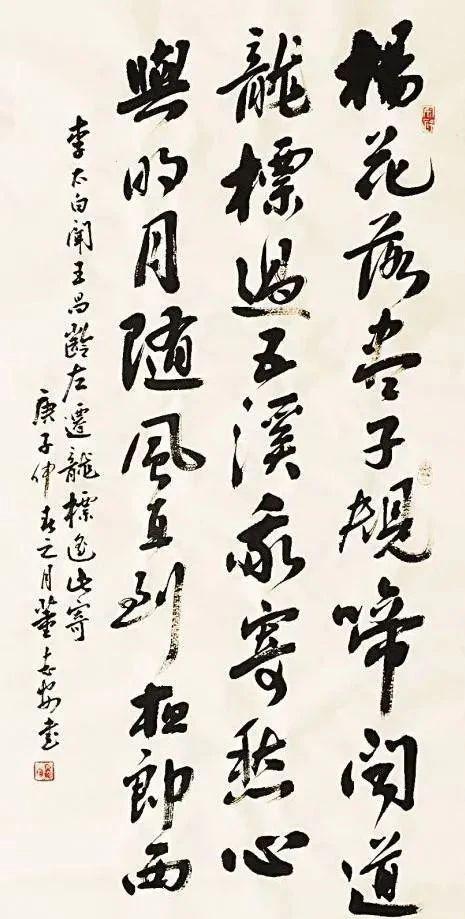 楊花落尽子規啼闻道
龍標過五溪我寄愁心
與明月随風直到夜郎西
李太白聞王昌齡左遷龍標遙此寄
庚子仲春之月董書